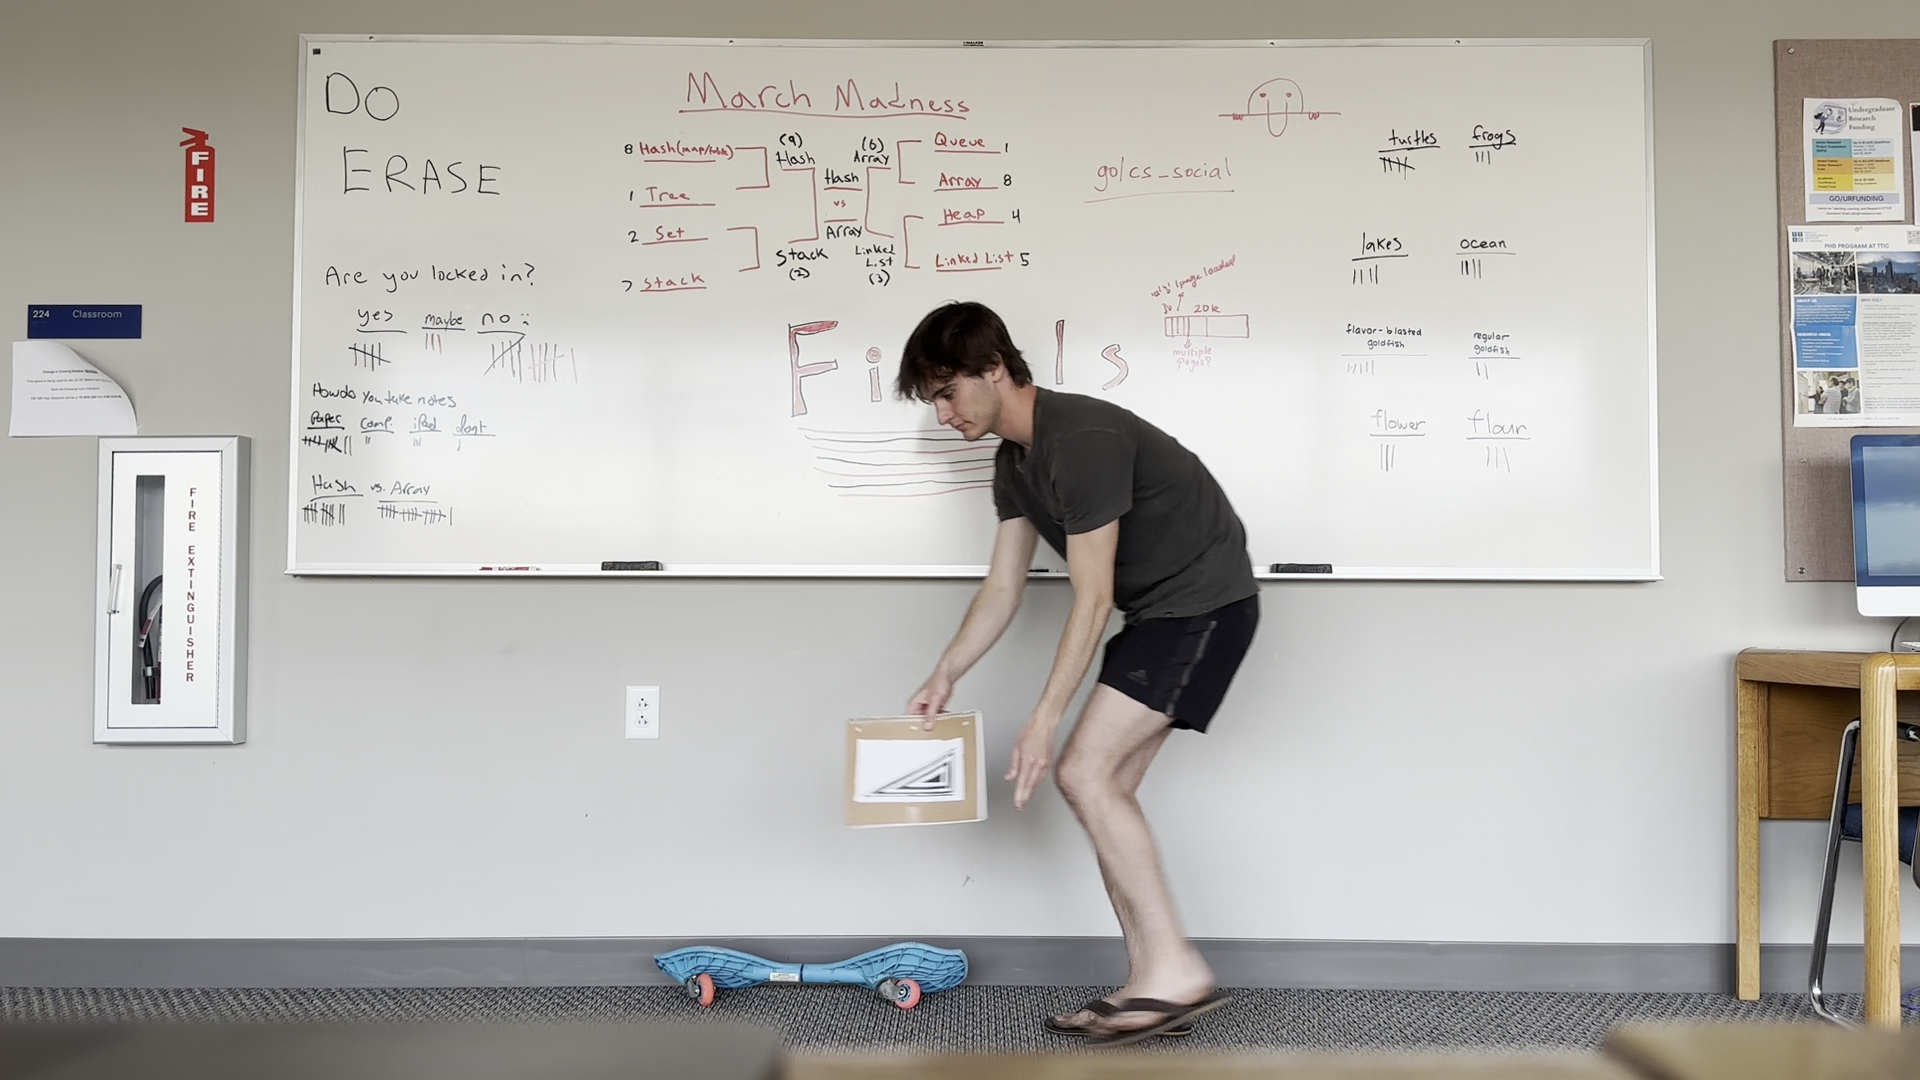 DO
ERASE
FIRE
224 Classroom
FIRE EXTINGUISHER
Are you locked in?
yes maybe no :
How do you take notes
Paper comp. iPad dont
Hash vs. Array
March Madness
8 Hash(map/table)
1 Tree
2 Set
7 Stack
(9)
Hash
Stack
(2)
Hash
vs
Array
(6)
Array
Linked
List
(3)
Queue 1
Array 8
Heap 4
Linked List 5
Fi ls
go/cs_social
20k
multiple
pages?
turtles frogs
lakes ocean
flavor-blasted
goldfish
regular
goldfish
flower flour
Undergraduate
Research
Funding
GO/URFUNDING
PHD PROGRAM AT TTIC